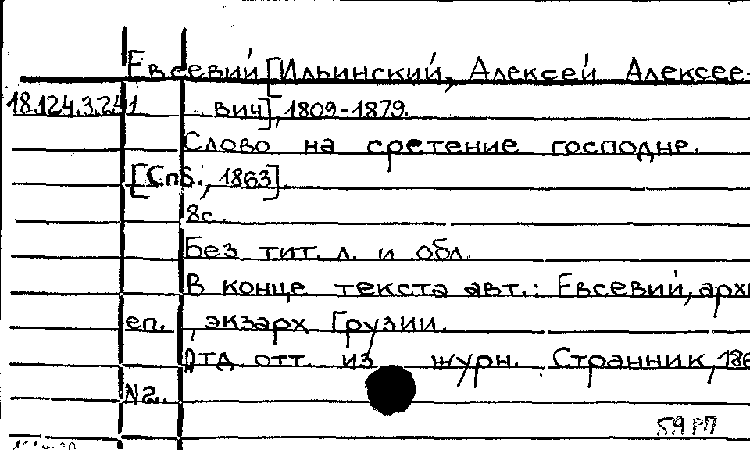 Евсевий [Ильинский, Алексей Алексее-
18.124.3.241 вич], 1809-1879.
Слово на сретение господне.
[Спб., 1863].
8с.
Без тит. л. и обл.
В конце текста авт.: Евсевий, архи
еп. , экзарх Грузии.
Отд. отт. из журн. Странник, 186
№2.
59 РП